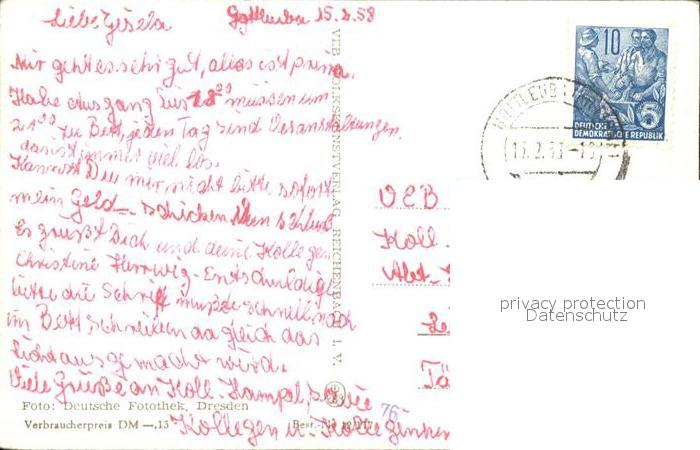 Liebe Gisela
Gottleuba 15.2.58
Mir geht es sehr gut, alles ist prima.
Habe Ausgang bis 18⁰⁰ müssen um
21⁰⁰ zu Bett, jeden Tag sind Veranstaltungen,
da ist immer viel los.
Kannst Du mir nicht bitte sofort
mein Geld schicken. Nun schluß
Es grüßt Dich und deine Kollegen
Christine Herrwig - Entschuldige
bitte die Schrift mußte schnell noch
im Bett schreiben da gleich das
Licht ausgemacht wird.
Viele Grüße an Koll. Hampel, sowie
Kollegen u. Kolleginnen
Foto: Deutsche Fotothek, Dresden
Verbraucherpreis DM —,15
Best.-Nr.
76
VEB VOLKSKUNSTVERLAG REICHENBACH I. V.
10
5
DEUTSCHE
DEMOKRATISCHE REPUBLIK
VEB
Koll.
Abt.
privacy protection
Datenschutz